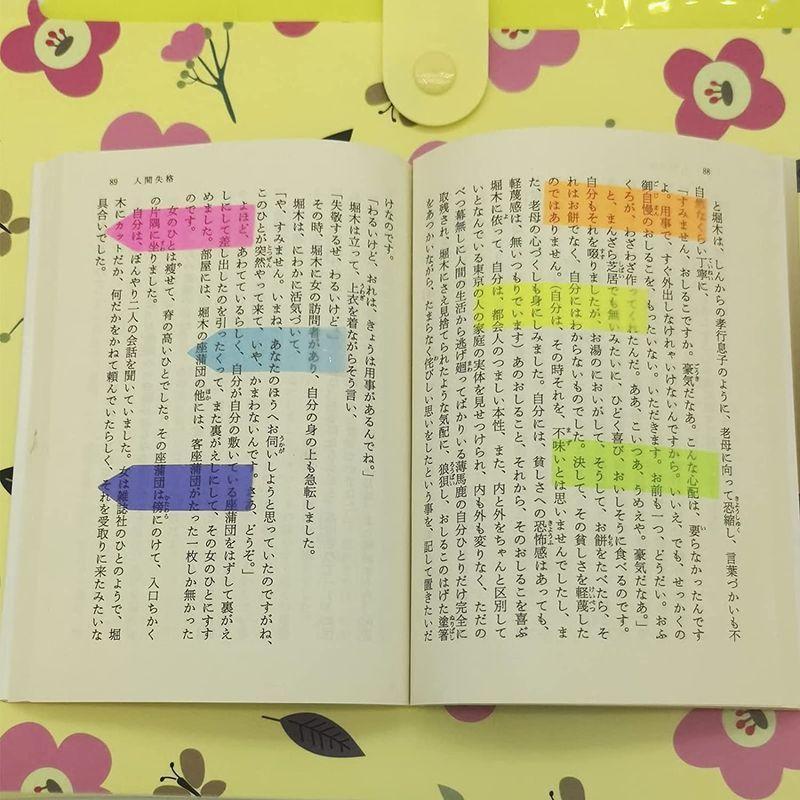 88
と堀木は、しんからの孝行息子のように、老母に向って恐縮し、言葉づかいも不
自然なくらい丁寧に、
「すみません、おしるこですか。豪気だなあ。こんな心配は、要らなかったんです
よ。用事で、すぐ外出しなけれゃいけないんですから。いいえ、でも、せっかくの
御自慢のおしるこを、もったいない。いただきます。お前も一つ、どうだい。おふ
くろが、わざわざ作ってくれたんだ。ああ、こいつあ、うめえや。豪気だなあ。」
と、まんざら芝居でも無いみたいに、ひどく喜び、おいしそうに食べるのです。
自分もそれを啜りましたが、お湯のにおいがして、そうして、お餅をたべたら、そ
れはお餅でなく、自分にはわからないものでした。決して、その貧しさを軽蔑した
のではありません。(自分は、その時それを、不味いとは思いませんでしたし、ま
た、老母の心づくしも身にしみました。自分には、貧しさへの恐怖感はあっても、
軽蔑感は、無いつもりでいます)あのおしること、それから、そのおしるこを喜ぶ
堀木に依って、自分は、都会人のつましい本性、また、内と外をちゃんと区別して
いとなんでいる東京の人の家庭の実体を見せつけられ、内も外も変りなく、ただの
べつ幕無しに人間の生活から逃げ廻ってばかりいる薄馬鹿の自分ひとりだけ完全に
取残され、堀木にさえ見捨てられたような気配に、狼狽し、おしるこのはげた塗箸
をあつかいながら、たまらなく侘びしい思いをしたという事を、記して置きたいだ
89 人間失格
けなのです。
「わるいけど、おれは、きょうは用事があるんでね。」
堀木は立って、上衣を着ながらそう言い、
「失敬するぜ、わるいけど」
その時、堀木に女の訪問者があり、自分の身の上も急転しました。
堀木は、にわかに活気づいて、
「や、すみません。いまね、あなたのほうへお伺いしようと思っていたのですがね、
このひとが突然やって来て、いや、かまわないんです。さあ、どうぞ。」
よほど、あわてているらしく、自分が自分の敷いている座蒲団をはずして裏がえ
しにして差し出したのを引ったくって、また裏がえしにして、その女のひとにすす
めました。部屋には、堀木の座蒲団の他には、客座蒲団がたった一枚しか無かった
のです。
女のひとは痩せて、脊の高いひとでした。その座蒲団は傍にのけて、入口ちかく
の片隅に坐りました。
自分は、ぼんやり二人の会話を聞いていました。女は雑誌社のひとのようで、堀
木にカットだか、何だかをかねて頼んでいたらしく、それを受取りに来たみたいな
具合いでした。